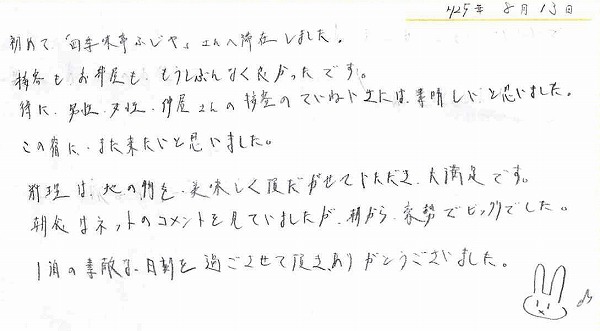 H25年 8月13日
初めて「四季味亭ふじや」さんへ滞在しました。
接客も、お部屋も、もうしぶんなく良かったです。
特に、男性、女性、仲居さんの接客のていねいさには、素晴しいと思いました。
この宿に、また来たいと思いました。
料理は、地の物を、美味しく頂だかせていただき、大満足です。
朝食はネットのコメントを見ていましたが、朝から、豪勢でビックリでした。
1泊の素敵な、日朝を過ごさせて頂き、ありがとうございました。